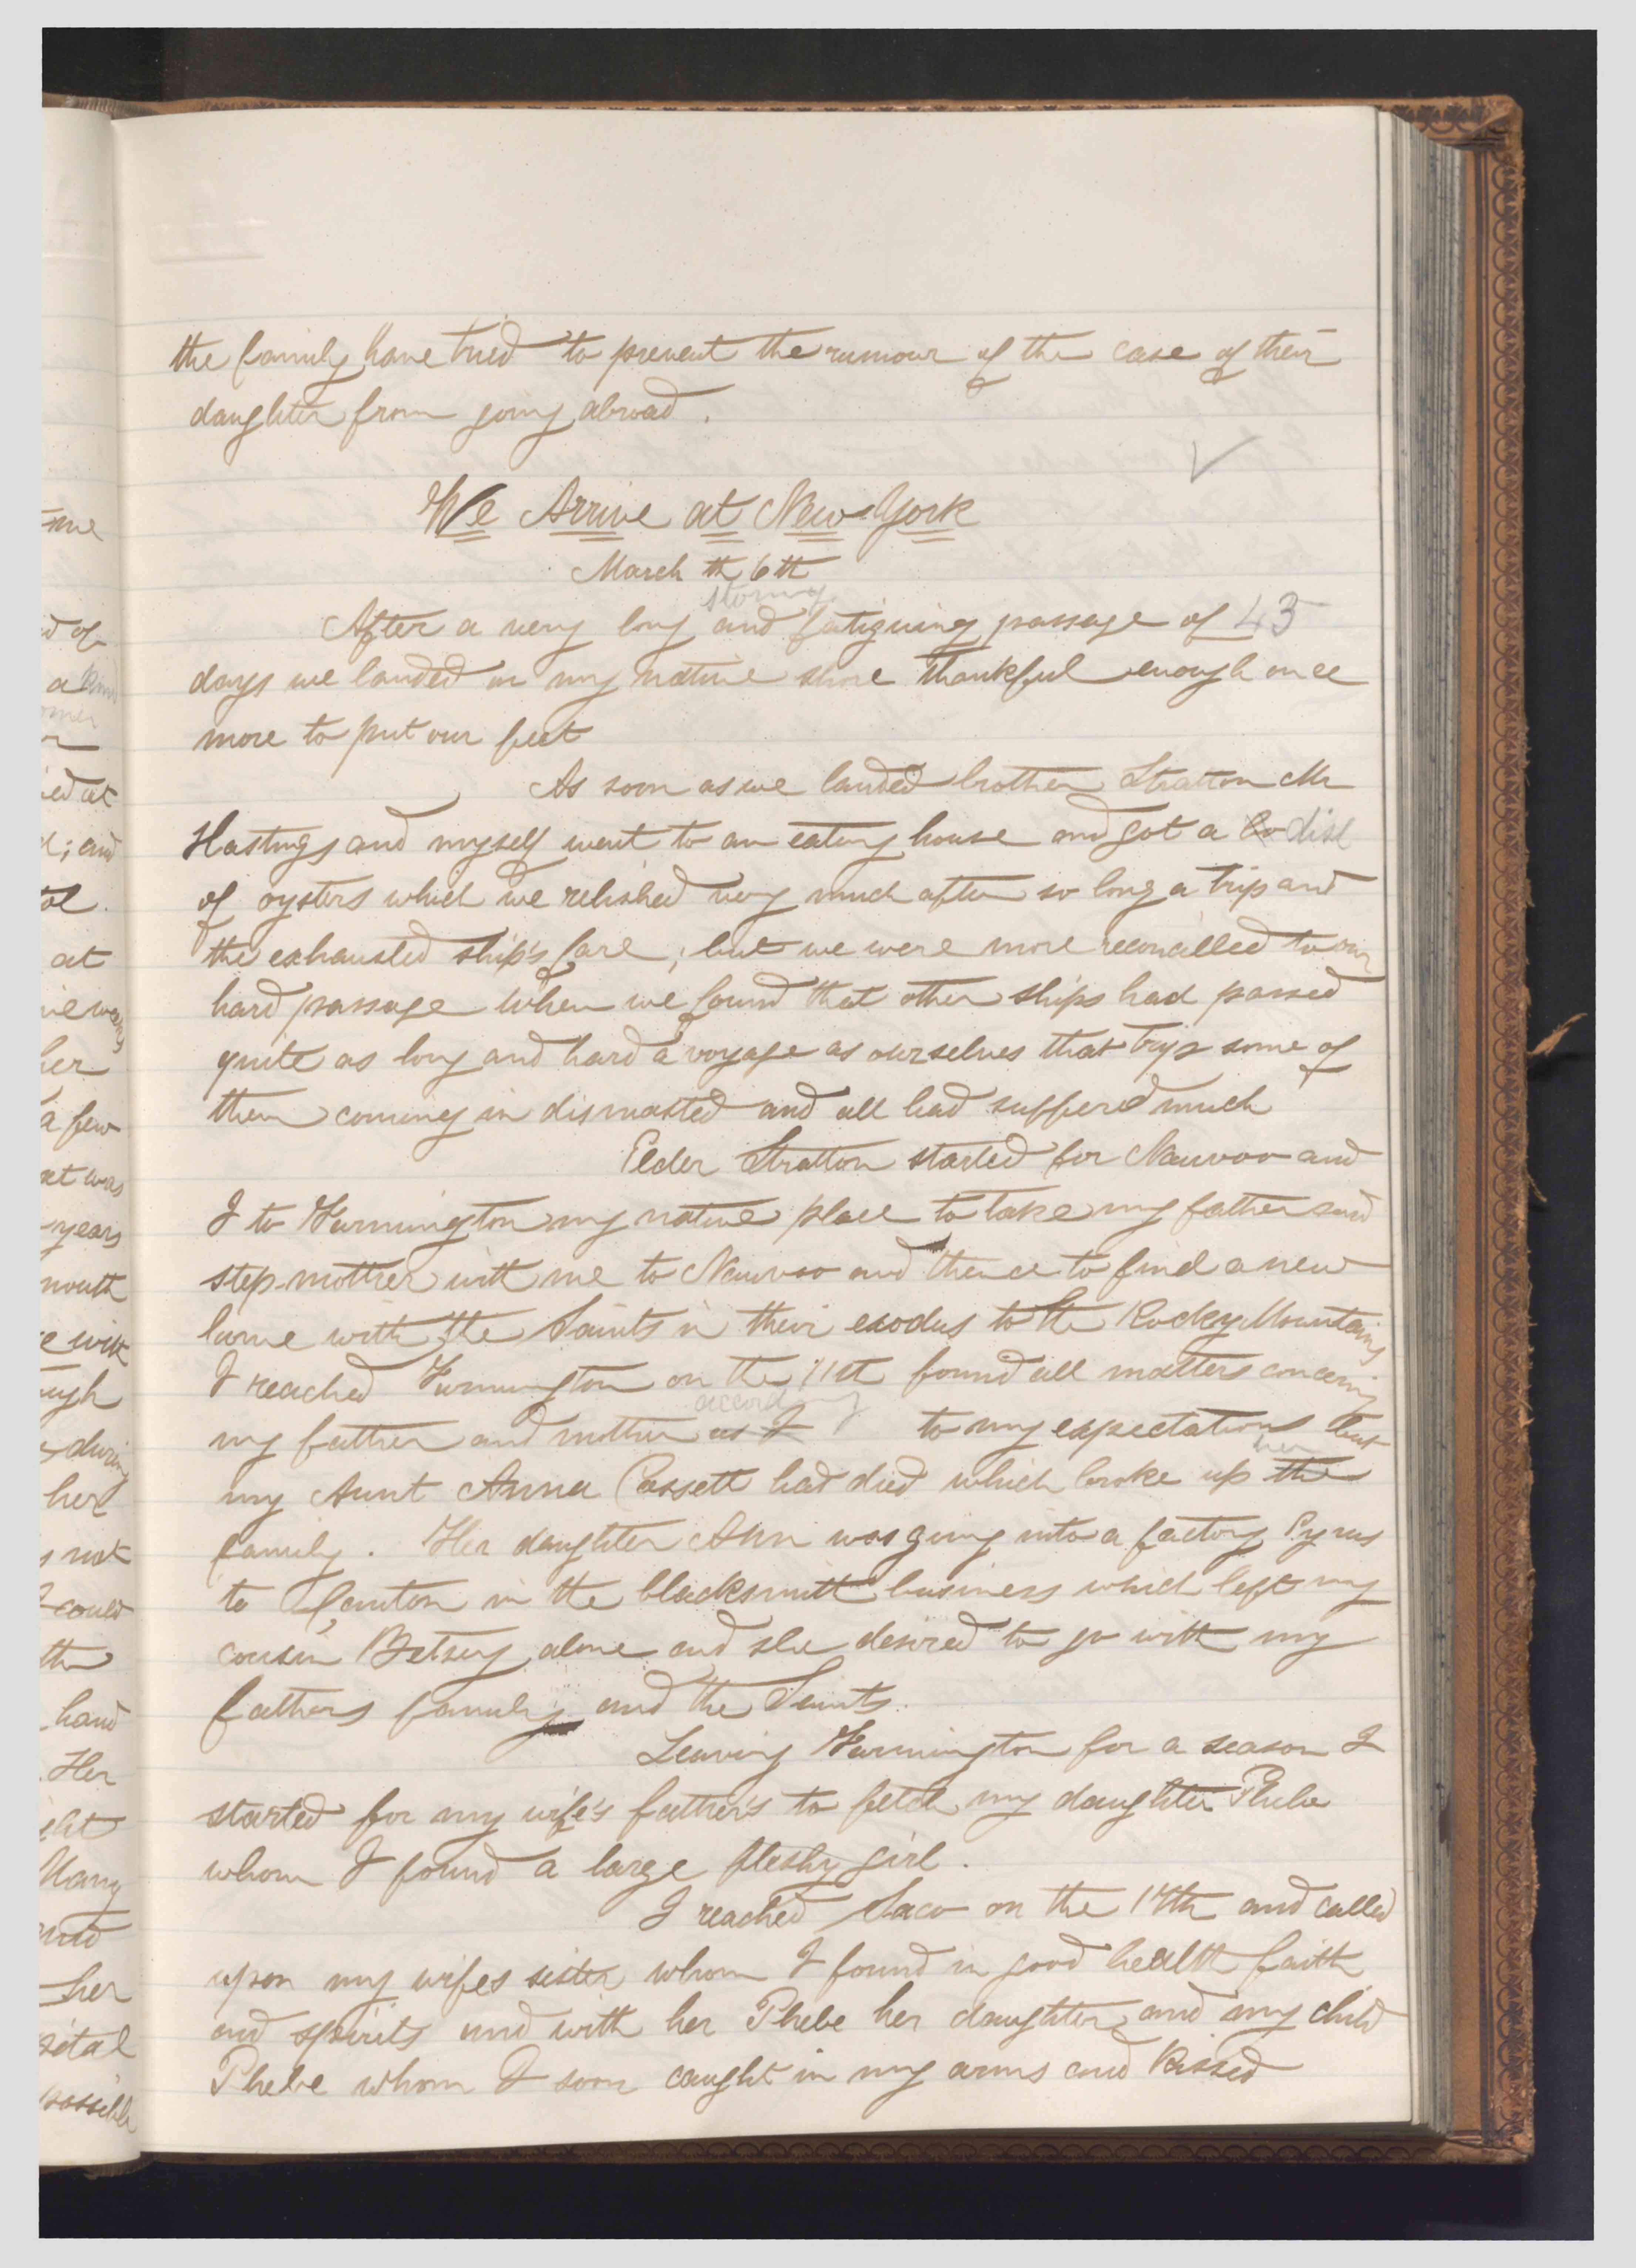 the family have tried to prevent the rumour of the case of their
daughter from going abroad.
We Arrive at New York
March th 6th
stormy
After a very long and fatiguing passage of 43
days we landed on my native shore thankful enough once
more to put our feet
As soon as we landed brother Stratton Mr
Hastings and myself went to an eating house and got a dish
of oysters which we relished very much after so long a trip and
the exhausted ship's fare; but we were more reconcilled to our
hard passage when we found that other ships had passed
quite as long and hard a voyage as ourselves that trip some of
them coming in dismasted and all had suffered much
Elder Stratton started for Nauvoo and
I to Farmington my native place to take my father and
step-mother with me to Nauvoo and thence to find a new
home with the Saints in their exodus to the Rocky Mountains
I reached Farmington on the 11th found all matters concerning
according
my father and mother as I to my expectations but
her
my Aunt Anna Cossett had died which broke up the
family. Her daughter Ann was going into a factory Cyrus
to Canton in the blacksmith business which left my
cousin Betsey alone and she desired to go with my
fathers family and the Saints.
Leaving Farmington for a season I
started for my wife's father's to fetch my daughter Phebe
whom I found a large fleshy girl.
I reached Saco on the 17th and called
upon my wifes sister whom I found in good health faith
and spirits and with her Phebe her daughter and my child
Phebe whom I soon caught in my arms and kissed
me
at
her
a few
years
mouth
her
not
could
hand
Her
Many
her
possible